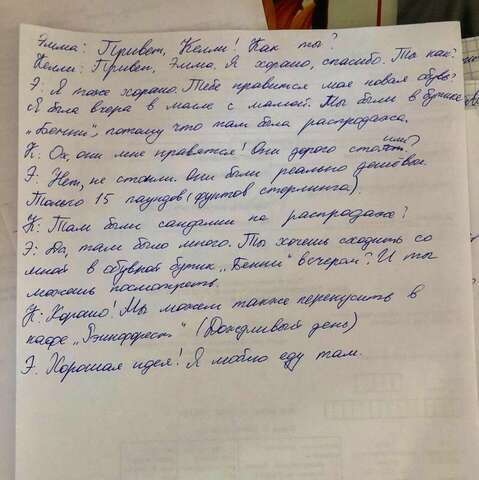 Эмма: Привет, Келли! Как ты?
Келли: Привет, Эмма. Я хорошо, спасибо. Ты как?
Э: Я тоже хорошо. Тебе нравится моя новая обувь?
Я была вчера в малле с мамой. Мы были в бутике
„Бенни", потому что там была распродажа.
К: Ох, они мне нравятся! Они дорого стоили?
Э: Нет, не стоили. Они были реально дешёвые.
Только 15 паундов (фунтов стерлинга).
К: Там были сандалии на распродаже?
Э: Да, там было много. Ты хочешь сходить со
мной в обувной бутик „Бенни" вечером? И ты
можешь посмотреть.
К: Хорошо! Мы можем также перекусить в
кафе (Дождливый день)
Э. Хорошая идея! Я люблю еду там.